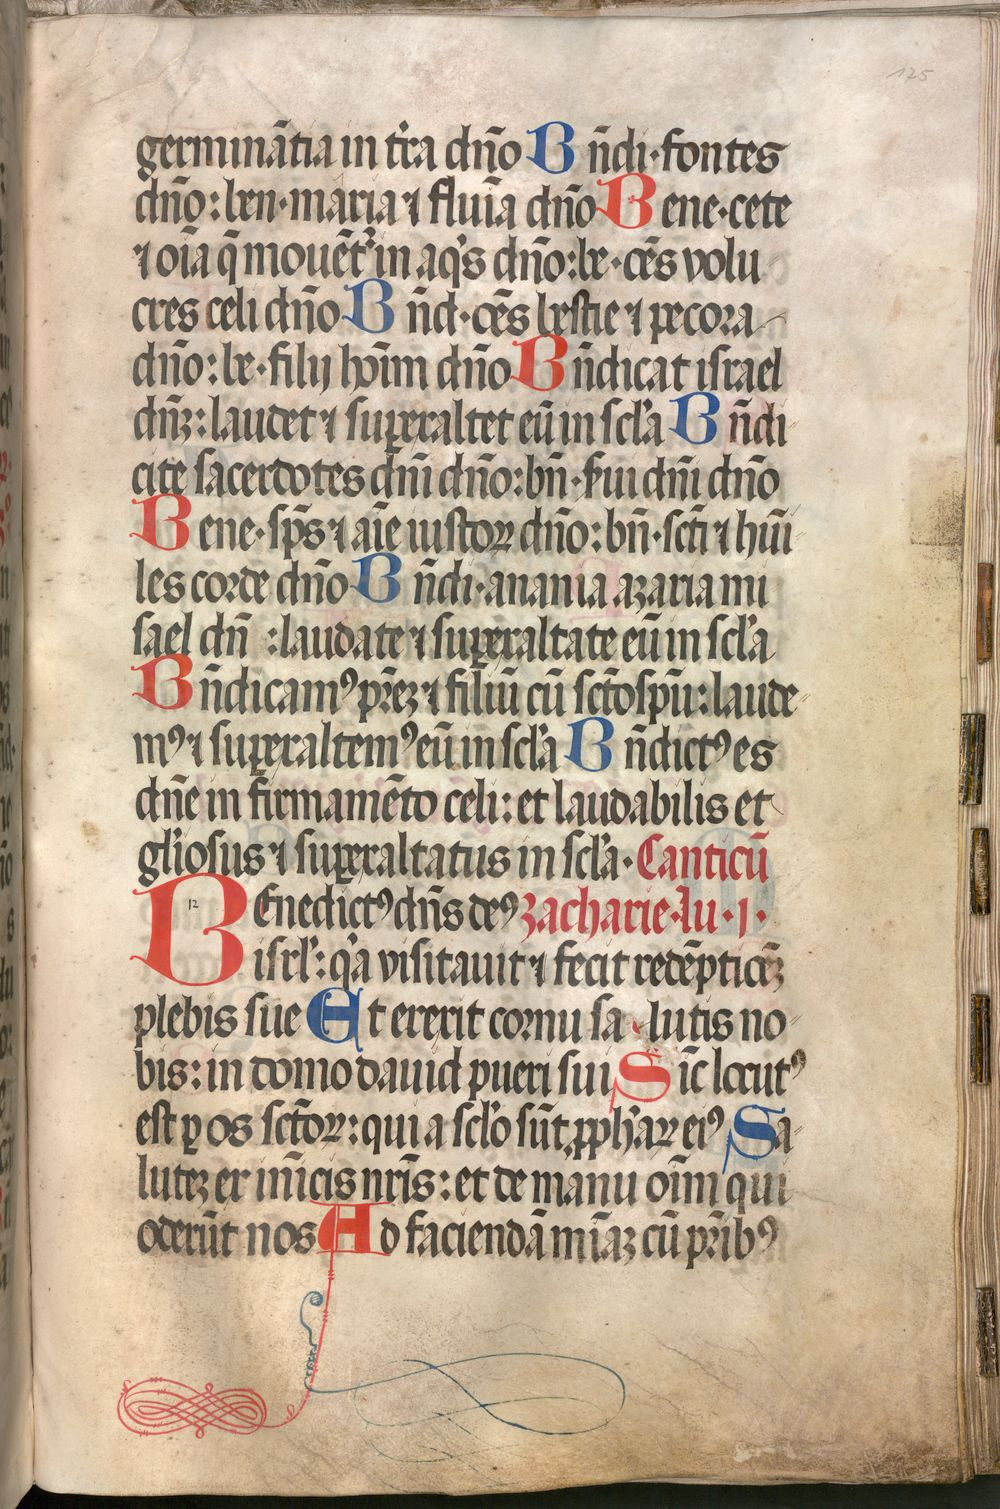 125
germinātia in tr̄a dn̄o Bn̄di·fontes
dn̄o: ben·maria ⁊ flum̄a dn̄o Bene·cete
⁊ om̄ia q̄ mouēt᷑ in aq̇s dn̄o: be·oēs volu
cres celi dn̄o Bn̄d·oēs bestie ⁊ pecora
dn̄o: be·filij hoīm dn̄o Bn̄dicat israel
dn̄ꝫ: laudet ⁊ suꝑexaltet eū in scl̓a Bn̄di
cite sacerdotes dn̄i dn̄o: bn̄·s̓ui dn̄i dn̄o
Bene·sp̄s ⁊ aīe iustoꝝ dn̄o: bn̄·scī ⁊ hūi
les corde dn̄o Bn̄di·anania azaria mi
sael dn̄ : laudate ⁊ suꝑexaltate eū in scl̓a
Bn̄dicamꝰ pr̄eꝫ ⁊ filiū cū scō sp̄u: laude-
mꝰ ⁊ suꝑexaltemꝰ eū in scl̓a Bn̄dictꝰ es
dn̄e in firmamēto celi: et laudabilis et
gl̓iosus ⁊ suꝑexaltatus in scl̓a· Canticū
Benedictꝰ dn̄s deꝰ Zacharie·lu·j·
12
isrl̓: q̓a visitauit ⁊ fecit redēpticēꝫ
plebis sue Et erexit cornu sa lutis no-
bis: in domo dauid pueri sui Sic̄ locutꝰ
est ꝑ os sct̄oꝝ: qui a scl̓o sūt ꝓph̓aꝝ eiꝰ Sa-
luteꝫ ex inīcis nr̄is: et de manu oīm qui
oderūt nos Ad faciendā mīaꝫ cū pr̄ibꝰ